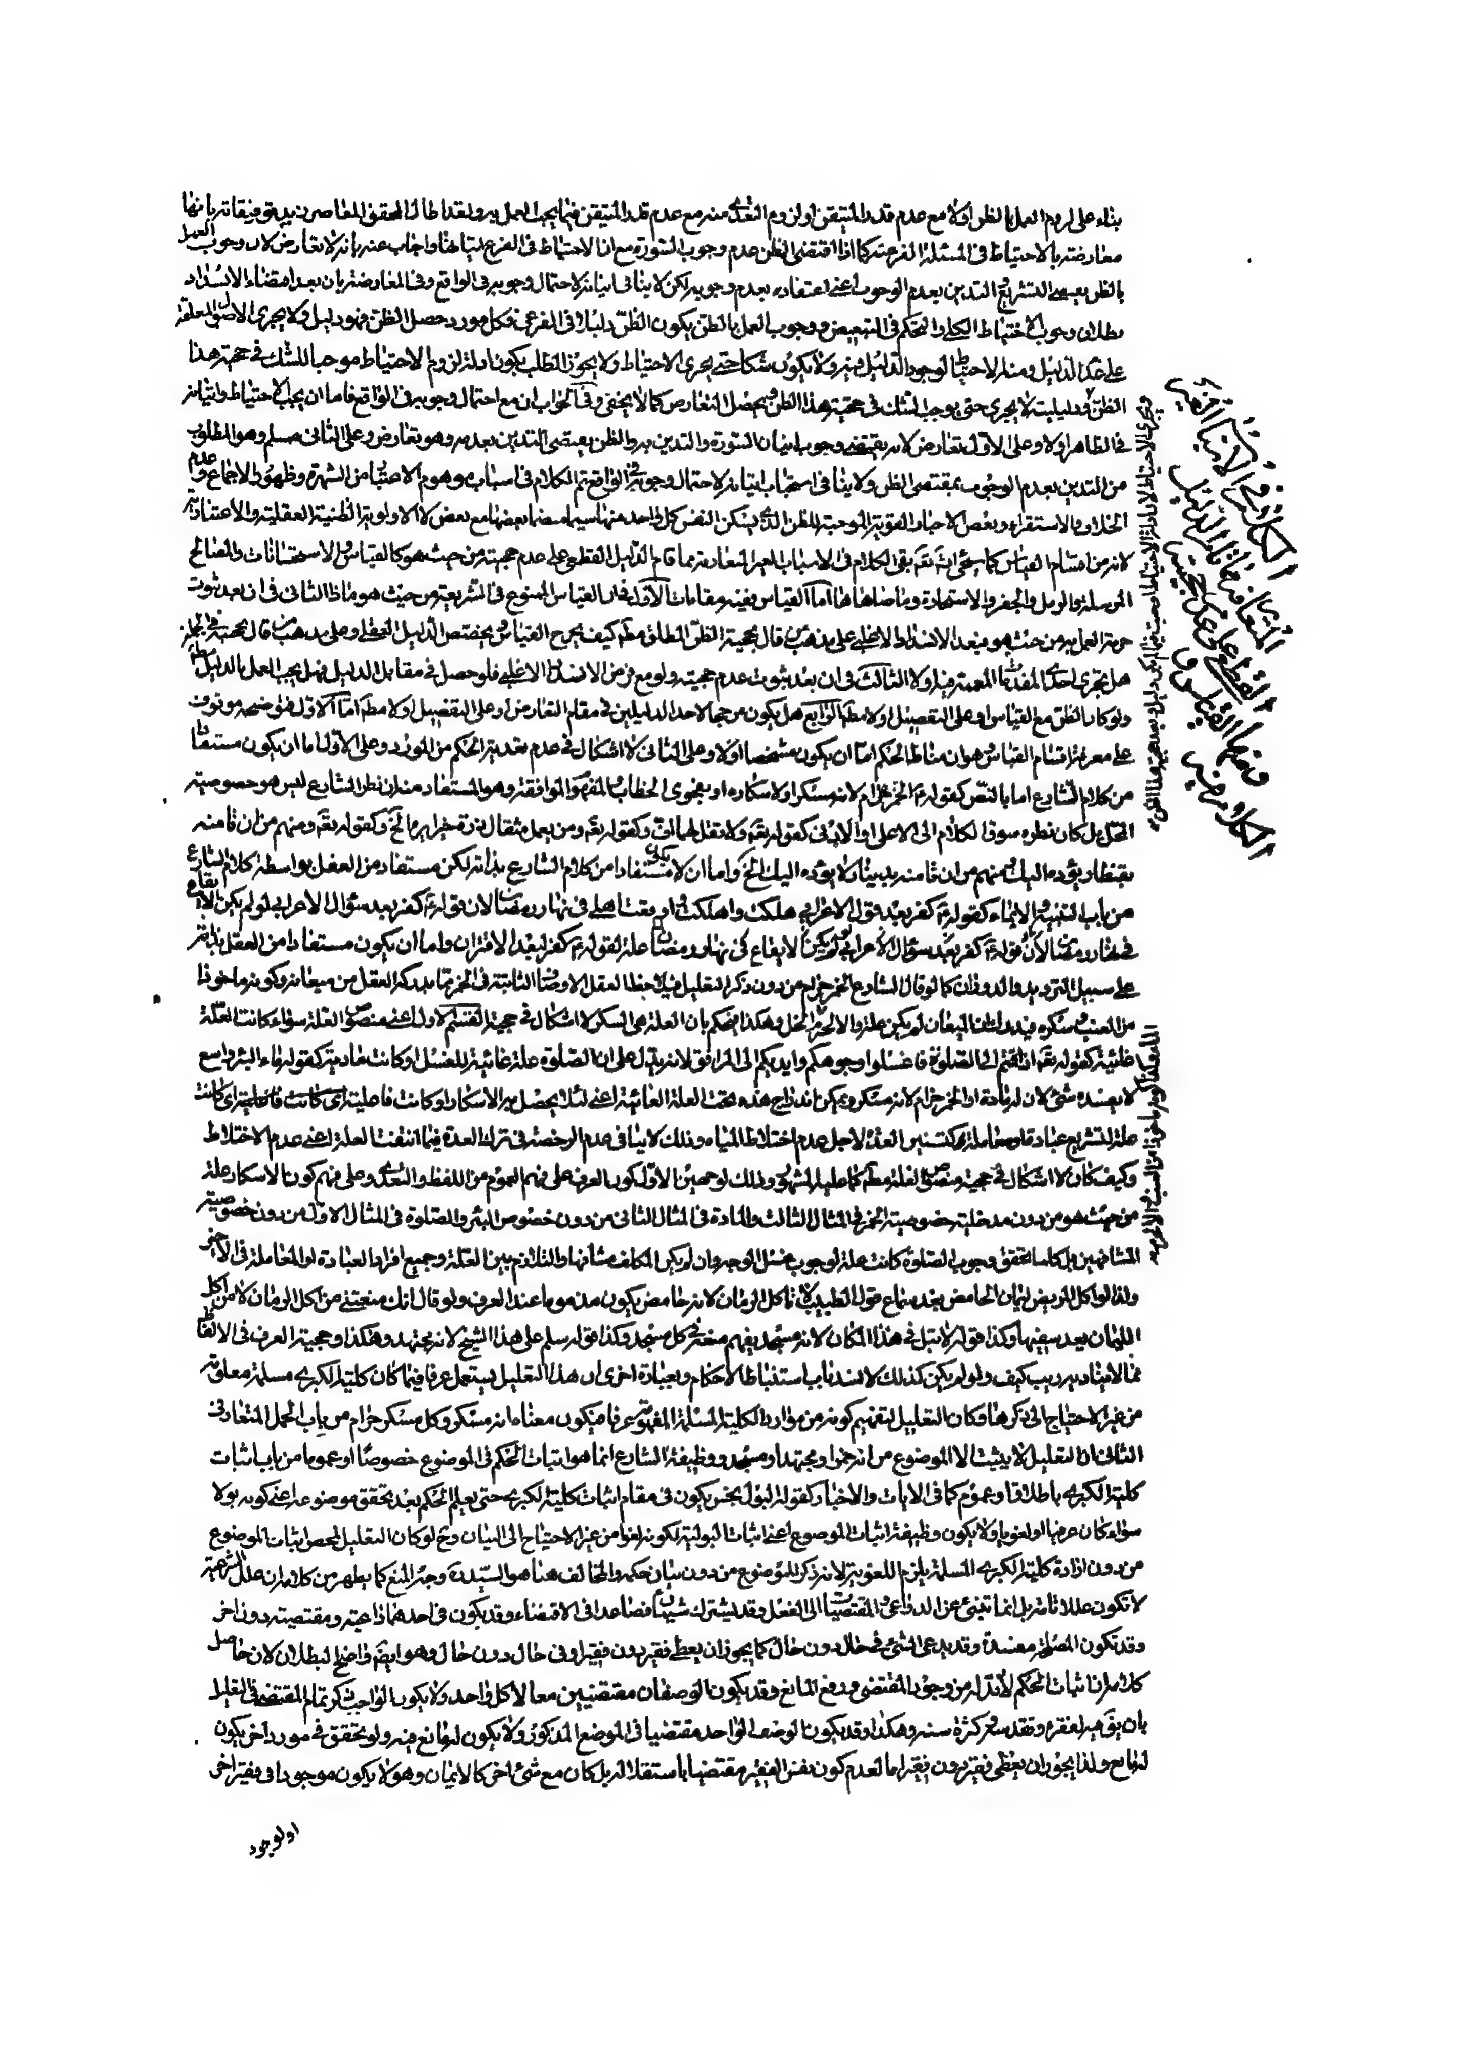 بناء على لزوم العمل بالظن اولا مع عدم قدر المتيقن او لزوم التعدي منه مع عدم قدر المتيقن فيما يجب العمل به ولقد اطال المحقق المعاصر
معارضته بالاحتياط فى المسئلة الفرعية كما اذا اقتضى الظن عدم وجوب السورة مع ان الاحتياط فى الفرع اتيانها واجاب عنه بانه لا تعارض لان وجوب العمل
بالظن بعدم الوجوب اعنى اعتقاده بعدم وجوبه لكن لا ينافى اتيانه لاحتمال وجوبه فى الواقع وفى المعارضة بان بعد اقتضاء الانسداد
بطلان وجوب الاحتياط الكلى والتحكم فى التبعيض ووجوب العمل بالظن يكون الظن دليلا فى الفرعى فكل مورد حصل الظن فهو دليل ولا يجرى الاصول المعلقة
على عدم الدليل ومنها الاحتياط لوجود الدليل فيه ولا يكون شكا حتى يجرى الاحتياط ولا يجوز الطلب بكون ادلة لزوم الاحتياط موجبا للشك فى حجية هذا
الظن ودليليته لا يجرى حتى يوجب الشك فى حجية هذا الظن ويحصل التعارض كما لا يخفى وفى الجواب ان مع احتمال وجوبه فى الواقع فاما ان يجب الاحتياط واتيانه
فى الظاهر اولا وعلى الاول تعارض لانه يقتضى وجوب اتيان السورة والتدين به والظن يقتضى التدين بعدمه وهو تعارض وعلى الثانى مسلم وهو المطلوب
من التدين بعدم الوجوب بمقتضى الظن ولا ينافى استحباب اتيانه لاحتمال وجوبه فى الواقع ثم الكلام فى اسبابه وهو من الشهرة وظهور الاجماع وعدم
الخلاف والاستقراء وبعض الاخبار القوية الموجبة للظن الذى يسكن النفس كل واحد منها سيما بعضها مع بعض لا الاولوية الظنية العقلية والاعتبارية
لانه من اقسام القياس كما سيجئ انشه تعه بقى الكلام فى الاسباب الغير المتعارفة مما قام الدليل القطعى على عدم حجيته من حيث هو كالقياس والاستحسانات والمصالح
المرسلة والرمل والجفر والاستخارة وما ضاهاها اما القياس ففيه مقامات الاول فى ان القياس ممنوع فى الشريعة من حيث هو ماذا الثانى فى ان بعد ثبوت
حرمة العمل به من حيث هو فبعد الانسداد الاغلبى على مذهب من قال بحجية الظن المطلق مطه كيف يخرج القياس ويخصص الدليل العقلى وعلى مذهب من قال بحجيته فى الجملة
هل يجرى احدى المقدمات المعممة فيه اولا الثالث فى ان بعد ثبوت عدم حجيته ولو مع فرض الانسداد الاغلبى فلو حصل فى مقابل الدليل فهل يجب العمل بالدليل مطه
ولو كان الظن مع القياس او على التفصيل اولا مطه الرابع هل يكون مرجحا لاحد الدليلين فى مقام التعارض او على التفصيل اولا مطه اما الاول فتوضيحه موقوف
على معرفة اقسام القياس وهو ان مناط الحكم اما ان يكون مشخصا اولا وعلى الثانى لا اشكال فى عدم تعدية الحكم من المورد وعلى الاول اما ان يكون مستفادا
من كلام الشارع اما بالنص كقوله ع الخمر حرام لانه مسكر او لاسكاره او بفحوى الخطاب والمفهوم الموافقة وهو المستفاد منه ان نظر الشارع ليس هو خصوصية
المحل بل كان نظره سوق الكلام الى الاعلى او الادنى كقوله تعه ولا تقل لهما اف وكقوله تعه ومن يعمل مثقال ذرة خيرا يره الخ وكقوله تعه ومنهم من ان تامنه
بقنطار يؤده اليك ومنهم من ان تامنه بدينار لا يؤده اليك الخ واما ان لا يكون مستفادا من كلام الشارع بذاته لكن مستفاد من العقل بواسطة كلام الشارع
من باب التنبيه والايماء كقوله ع كفر بعد قول الاعرابى هلكت واهلكت واوقعت اهلى فى نهار رمضان لان قوله ع كفر بعد سؤال الاعرابى لو لم يكن لاجل ايقاع
على سبيل الترديد والدوران كما لو قال الشارع الخمر حرام من دون ذكر التعليل فيلاحظ العقل الاوصاف الثابتة فى الخمر مما يدركه العقل من ميعانه وكونه ماخوذا
من العنب وسكره فيدرك ان الميعان لم يكن علة والا لحرم الخل وهكذا فيحكم بان العلة هى السكر لا اشكال فى حجية القسم الاول اعنى منصوص العلة سواء كانت العلة
غائية كقوله تعه اذا قمتم الى الصلوة فاغسلوا وجوهكم وايديكم الى المرافق لانه يدل على ان الصلوة علة غائية للغسل او كانت مادية كقوله ماء البئر واسع
لا يفسده شئ لان له مادة او الخمر حرام لانه مسكر ويمكن اندراج هذه تحت العلة الغائية اعنى لئلا يحصل به الاسكار او كانت فاعلية اى كانت
علة لتشريع عبادة او معاملة كتسنين العدة لاجل عدم اختلاط المياه وذلك لا ينافى عدم الرخصة فى ترك العدة فيما انتفت العلة اعنى عدم الاختلاط
وكيف كان لا اشكال فى حجية منصوص العلة مطه كما عليه المشهور وذلك لوجهين الاول كون العرف على فهم العموم من اللفظ والتعدى وعلى فهم كون الاسكار علة
من حيث هو من دون مدخلية خصوصية الخمر فى المثال الثالث والمادة فى المثال الثانى من دون خصوص البئر والصلوة فى المثال الاول من دون خصوصية
المشافهين بل كلما تحقق وجوب الصلوة كانت علة لوجوب غسل الوجه وان لم يكن المكلف مشافها والتلازم بين العلة وجميع افراد العبادة او المعاملة فى الاخير
ولذا لو اكل المريض الحامض بعد سماع قول الطبيب لا تاكل الرمان لانه حامض يكون مذموما عند العرف ولو قال انك منعتنى من اكل الرمان لا من اكل
وكذا قوله لا تبل فى هذا المكان لانه مسجد يفهم منه كل مسجد وكذا قوله سلم على هذا الشيخ لانه مجتهد وهكذا وحجية العرف فى الالفاظ
مما لا يتاتى فيه ريب كيف ولو لم يكن كذلك لانسد باب استنباط الاحكام وبعبارة اخرى ان هذا التعليل يستعمل عرفا فيما كان كلية الكبرى مسلمة معلومة
من غير الاحتياج الى ذكرها وكان التعليل لتفهيم كونه من موارد الكلية المسلمة المفهومة عرفا فيكون معناه انه مسكر وكل مسكر حرام من باب الحمل المتعارف
الثانى ان التعليل لا يثبت الا الموضوع من انه خمر او مجتهد او مسجد ووظيفة الشارع انما هو اثبات الحكم فى الموضوع خصوصا او عموما من باب اثبات
كلية الكبرى باطلاق او عموم كما فى الايات والاخبار كقوله البول نجس يكون فى مقام اثبات كلية الكبرى حتى يعلم الحكم بعد تحقق موضوعه اعنى كونه بولا
سواء كان عرفيا او لغويا ولا يكون وظيفة اثبات الموضوع اعنى اثبات البولية لكونه لغوا من غير الاحتياج الى البيان وح لو كان التعليل لمحض اثبات الموضوع
من دون ارادة كلية الكبرى المسلمة يلزم اللغوية لانه ذكر للموضوع من دون بيان حكمه والمخالف هنا هو السيد ره وجه المنع كما يظهر من كلامه ان علل الشرعية
لا تكون عللا تامة بل انما تنبئ عن الدواعى والمقتضيات الى الفعل وقد يشترك شيئان فصاعدا فى الاقتضاء وقد يكون فى احدهما داعية ومقتضية دون اخر
وقد تكون المصلحة مفسدة وقد يدعى الشئ فى حال دون حال كما يجوز ان يعطى فقير دون فقير او فى حال دون حال وهو ايضه واضح البطلان لان حاصل
كلامه ان اثبات الحكم لا بد له من وجود المقتضى ورفع المانع وقد يكون الوصفان مقتضيين معا لا كل واحد ولا يكون الواجب ذكر تمام المقتضى فى التعليل
وهكذا وقد يكون الوصف الواحد مقتضيا فى الموضع المذكور ولا يكون له مانع فيه ولو تحقق فى مورد اخر يكون
له مانع ولذا يجوز ان يعطى فقير دون فقير اما لعدم كون نفس الفقر مقتضيا باستقلاله بل كان مع شئ اخر كالايمان وهو لا يكون موجودا فى فقير اخر
او لوجود